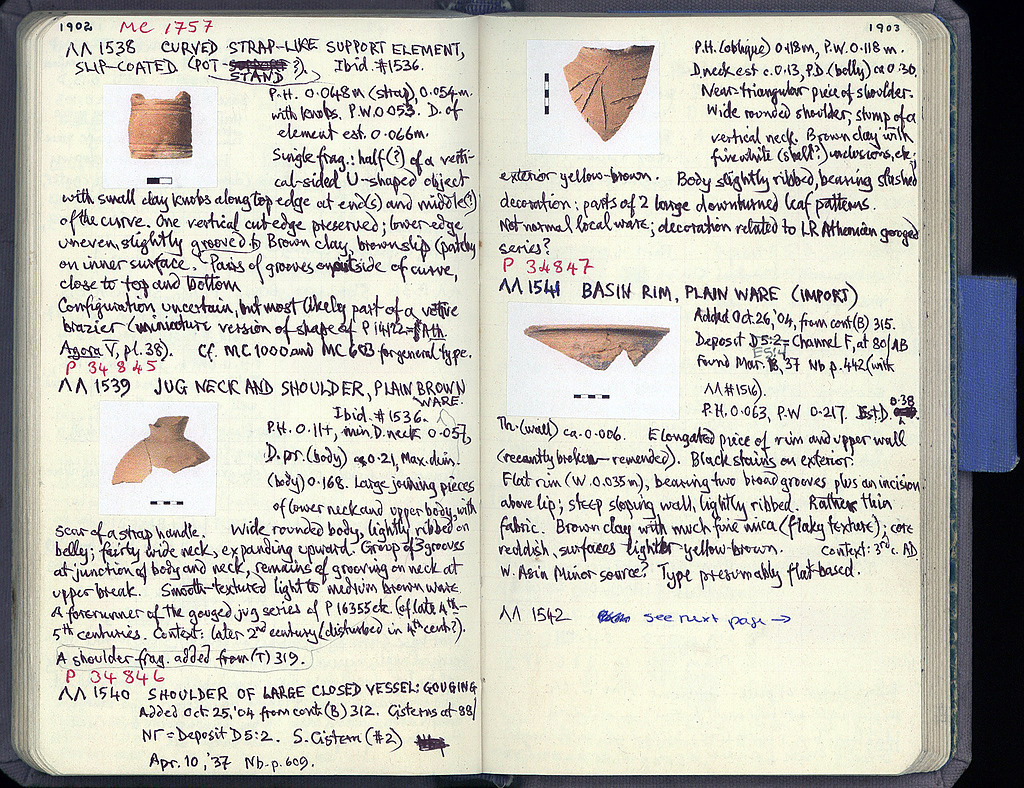 1902
MC 1757
ΛΛ 1538 CURVED STRAP-LIKE SUPPORT ELEMENT,
SLIP-COATED (POT-STAND?). Ibid. #1536.
P.H. 0.048m (strap), 0.054m.
with knobs. P.W. 0.053. D. of
element est. 0.066m.
Single frag.: half(?) of a verti-
cal-sided U-shaped object
with small clay knobs along top edge at end(s) and middle(?)
of the curve. One vertical cut edge preserved; lower edge
uneven, slightly grooved. Brown clay, brown slip (patchy
on inner surface. Pairs of grooves outside of curve,
close to top and bottom
Configuration uncertain, but most likely part of a votive
brazier (miniature version of shape of P 14122= Ath.
Agora V, pl. 38). Cf. MC 1000 and MC 603 for general type.
P 34845
ΛΛ 1539 JUG NECK AND SHOULDER, PLAIN BROWN
WARE.
Ibid. #1536.
P.H. 0.11+, min. D. neck 0.057,
D. pr. (body) ca 0.21, Max. dim.
(body) 0.168. Large joining pieces
of lower neck and upper body, with
scar of a strap handle. Wide rounded body, lightly ribbed on
belly; fairly wide neck, expanding upward. Group of 3 grooves
at junction of body and neck, remains of grooving on neck at
upper break. Smooth-textured light to medium brown ware.
A forerunner of the gouged jug series of P 16355 etc. (of late 4th-
5th centuries. Context: later 2nd century (disturbed in 4th cent?).
A shoulder frag. added from (T) 319.
P 34846
ΛΛ 1540 SHOULDER OF LARGE CLOSED VESSEL: GOUGING
Added Oct. 25, '04 from cont (B) 312. Cisterns at 88/
ΝΓ = Deposit D 5:2. S. Cistern (#2)
Apr. 10, '37 Nb. p. 609.
1903
P.H. (oblique) 0.118m, P.W. 0.118 m.
D. neck est c. 0.13, P.D. (belly) ca 0.30.
Near-triangular piece of shoulder.
Wide rounded shoulder, stump of a
vertical neck. Brown clay with
fine white (shell?) inclusions, etc;
exterior yellow-brown. Body slightly ribbed, bearing slashed
decoration: parts of 2 large downturned leaf patterns.
Not normal local ware; decoration related to LR Athenian gouged
series?
P 34847
ΛΛ 1541 BASIN RIM, PLAIN WARE (IMPORT)
Added Oct. 26, '04, from cont (B) 315.
Deposit D 5:2 = Channel F, at 80/ΑΒ
Found Mar. 18, 37 Nb p. 442 (with
ΛΛ #1516).
P.H. 0.063, P.W 0.217. Est. D. 0.38
Th. (wall) ca. 0.006. Elongated piece of rim and upper wall
(recently broken - remended). Black stains on exterior.
Flat rim (W. 0.035m), bearing two broad grooves plus an incision
above lip; steep sloping wall, lightly ribbed. Rather thin
fabric. Brown clay with much fine mica (flaky texture); core
reddish, surfaces lighter yellow-brown. Context: 3rd c. AD
W. Asia Minor source? Type presumably flat-based.
ΛΛ 1542 see next page →